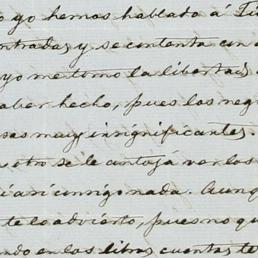 o yo hemos hablado á
ntradas y se contenta con
yo me tomo la libertad
aber hecho, pues los neg
sas muy insignificantes.
otro se le antoja ver los
consigo nada. Aunq
te lo advierto, pues no qu
ndo en los libros cuentas te